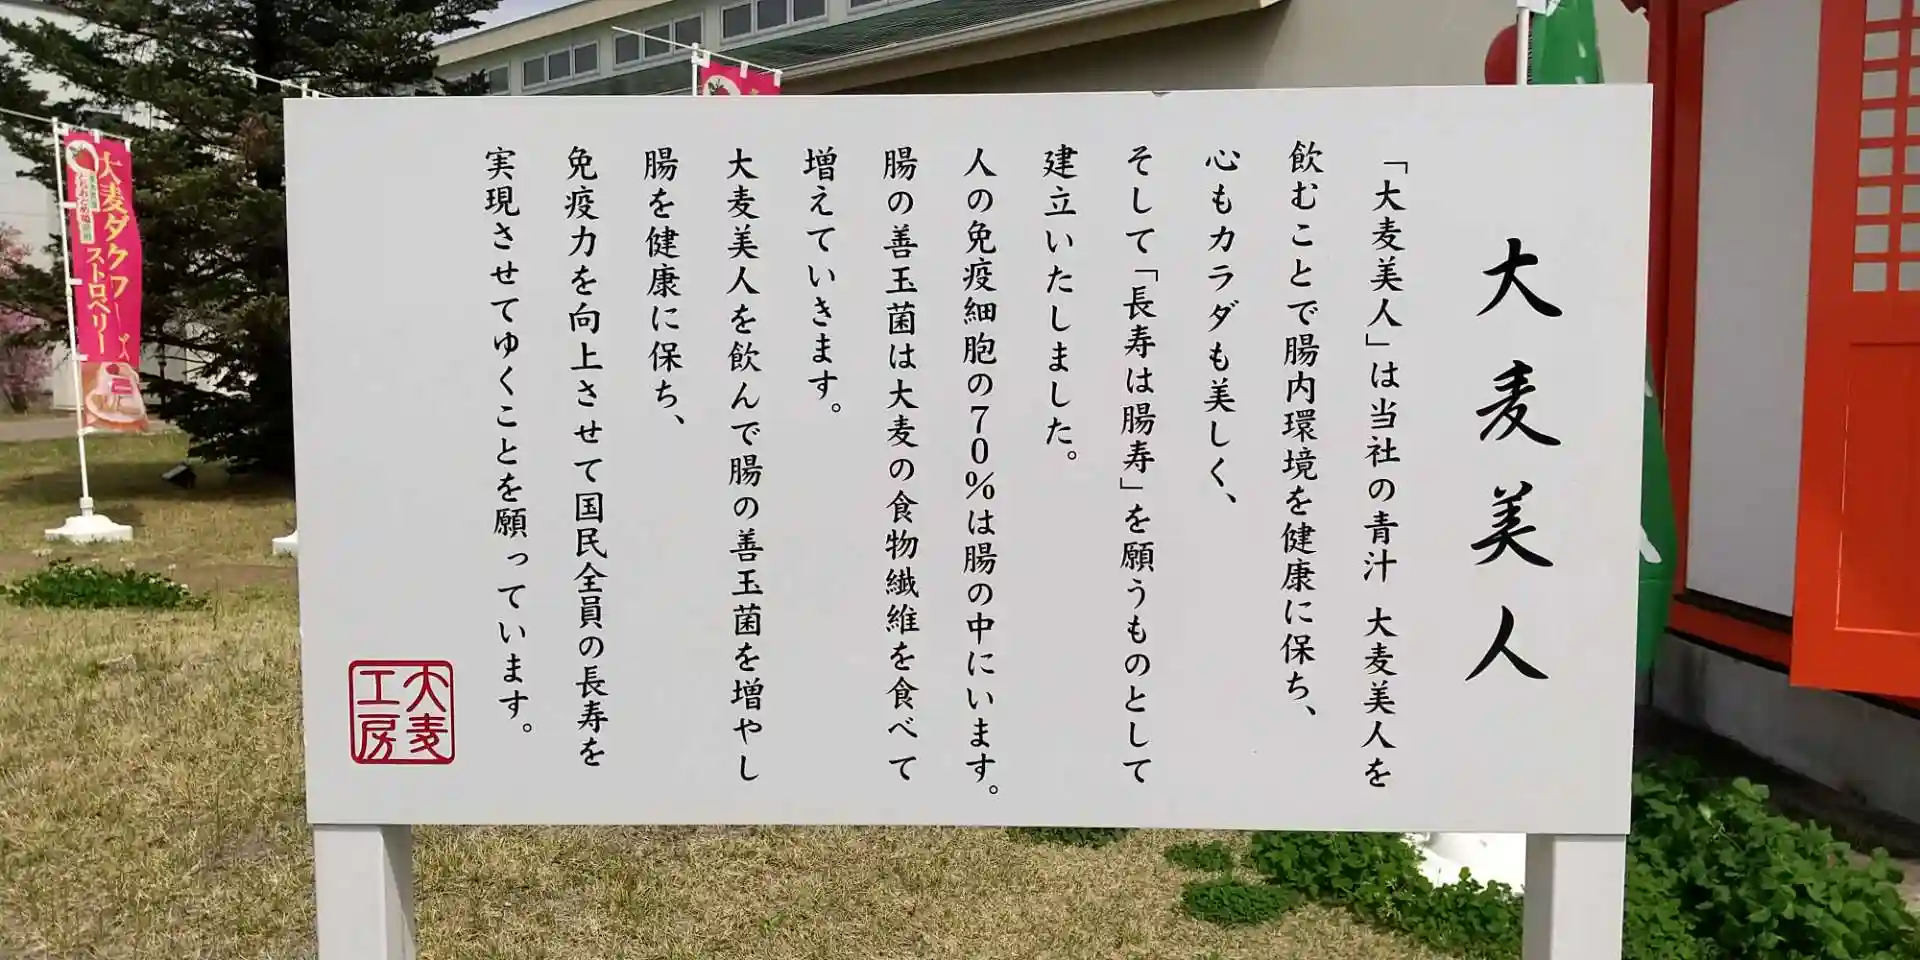 大麦美人
「大麦美人」は当社の青汁 大麦美人を
飲むことで腸内環境を健康に保ち、
心もカラダも美しく、
そして「長寿は腸寿」を願うものとして
建立いたしました。
人の免疫細胞の70%は腸の中にいます。
腸の善玉菌は大麦の食物繊維を食べて
増えていきます。
大麦美人を飲んで腸の善玉菌を増やし
腸を健康に保ち、
免疫力を向上させて国民全員の長寿を
実現させてゆくことを願っています。
大麦
工房
大麦ダクワーズ
ストロベリー